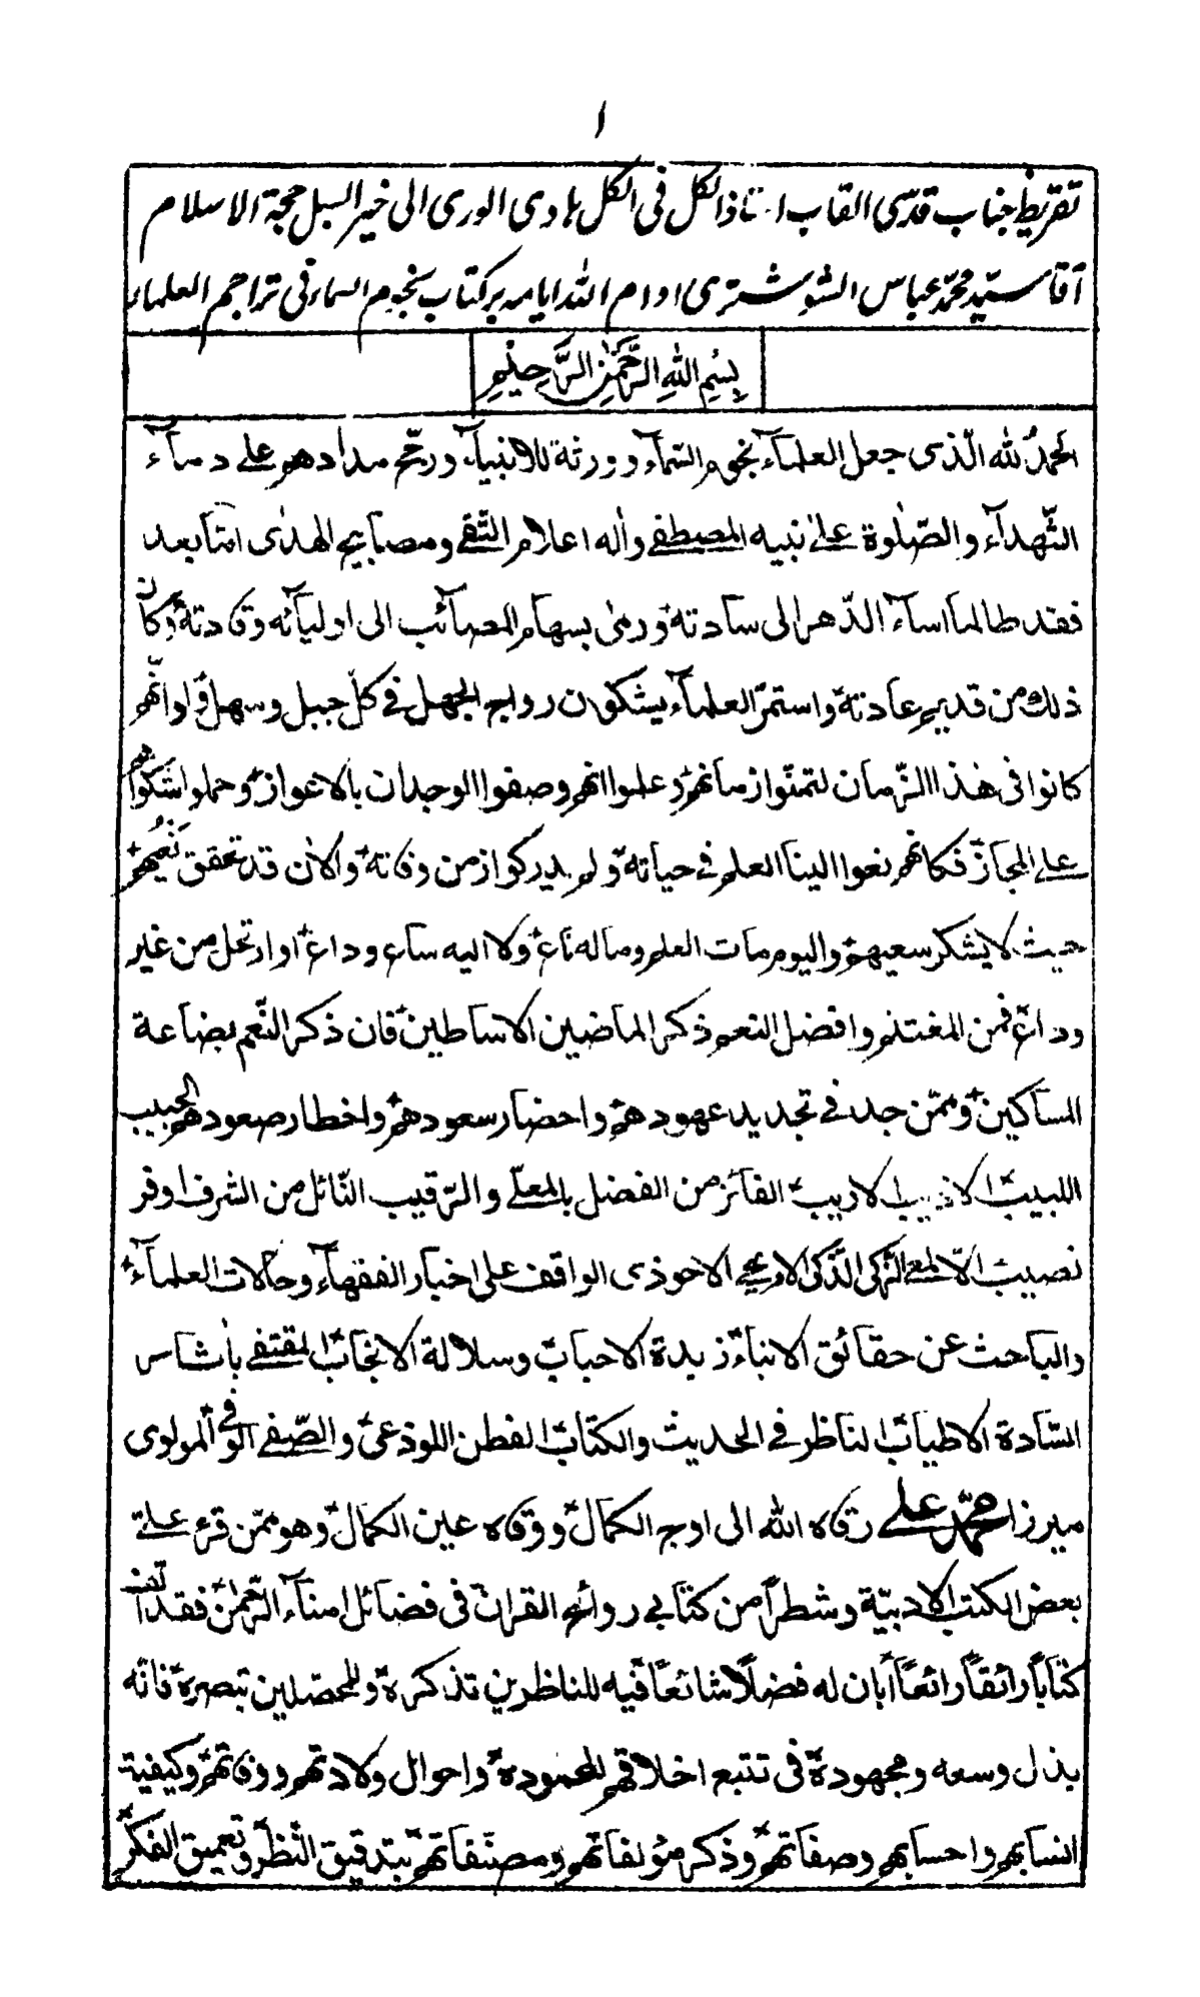 ١
تقریظ جناب قدسی القاب استاذ الکل فی الکل هادی الوری الی خیر السبل حجة الاسلام
آقا سیّد محمّد عباس الشوشتری ادام الله ایامه بر کتاب نجوم السماء فی تراجم العلماء
بِسْمِ اللهِ الرَّحْمٰنِ الرَّحِيْمِ
الحمدُ لله الّذى جعل العلمآء نجوم السّمآء وورثة للانبيآء ورجّح مدادهم على دمآء
الشّهدآء والصّلوة على نبيه المصطفى واله اعلام التّقى ومصابيح الهدى امّا بعد
فقد طالما اسآء الدّهر الى سادته ورمى بسهام المصآئب الى اوليآئه وقادته وكان
ذلك من قديم عادته واستمرّ العلمآء يشكون رواج الجهل فى كلّ جبل وسهل ولو انّهم
كانوا فى هذا الزّمان لتمنّوا زمانهم وعلموا انهم وصفوا الوجدان بالاعواز وحملوا شكواهم
على المجاز فكانهم نعوا الينا العلم فى حياته ولم يدركوا زمن وفاته والان قد تحقق نَعيُهم
حيث لا يشكر سعيهم واليوم مات العلم وما له ناع ولا اليه ساع وداع او ارتحل من غير
وداع فمن المغتنم وافضل النعم ذكر الماضين الاساطين فان ذكر النّعم بضاعة
المساكين وممّن جد فى تجديد عهودهم واحضار سعودهم واخطار صعودهم الحبيب
اللبيب الاديب الاريب الفائز من الفضل بالمعلّى والرّقيب النّائل من الشرف اوفر
نصيب الالمعى الزكى الذكى الاريحى الاحوذى الواقف على اخبار الفقهآء وحالات العلمآء
والباحث عن حقائق الانباء زبدة الاحباب وسلالة الانجاب المقتفى باثار
السّادة الاطياب الناظر فى الحديث والكتاب الفطن اللوذعى والصّفى الوفى المولوى
ميرزا محمّد على رقاه الله الى اوج الكمال ووقاه عين الكمال وهو ممّن قرء علىّ
بعض الكتب الادبيّة وشطراً من كتابى روائح القران فى فضائل امنآء الرّحمن فقد الّف
كتاباً رائقاً رائعاً أبان له فضلاً شائعاً فيه للناظرين تذكرة وللمحصّلين تبصرة فانّه
بذل وسعه ومجهوده فى تتبع اخلاقهم المحمودة واحوال ولادتهم ووفاتهم وكيفية
انسابهم واحسابهم وصفاتهم وذكر مؤلفاتهم ومصنّفاتهم بتدقيق النّظر وتعميق الفكر